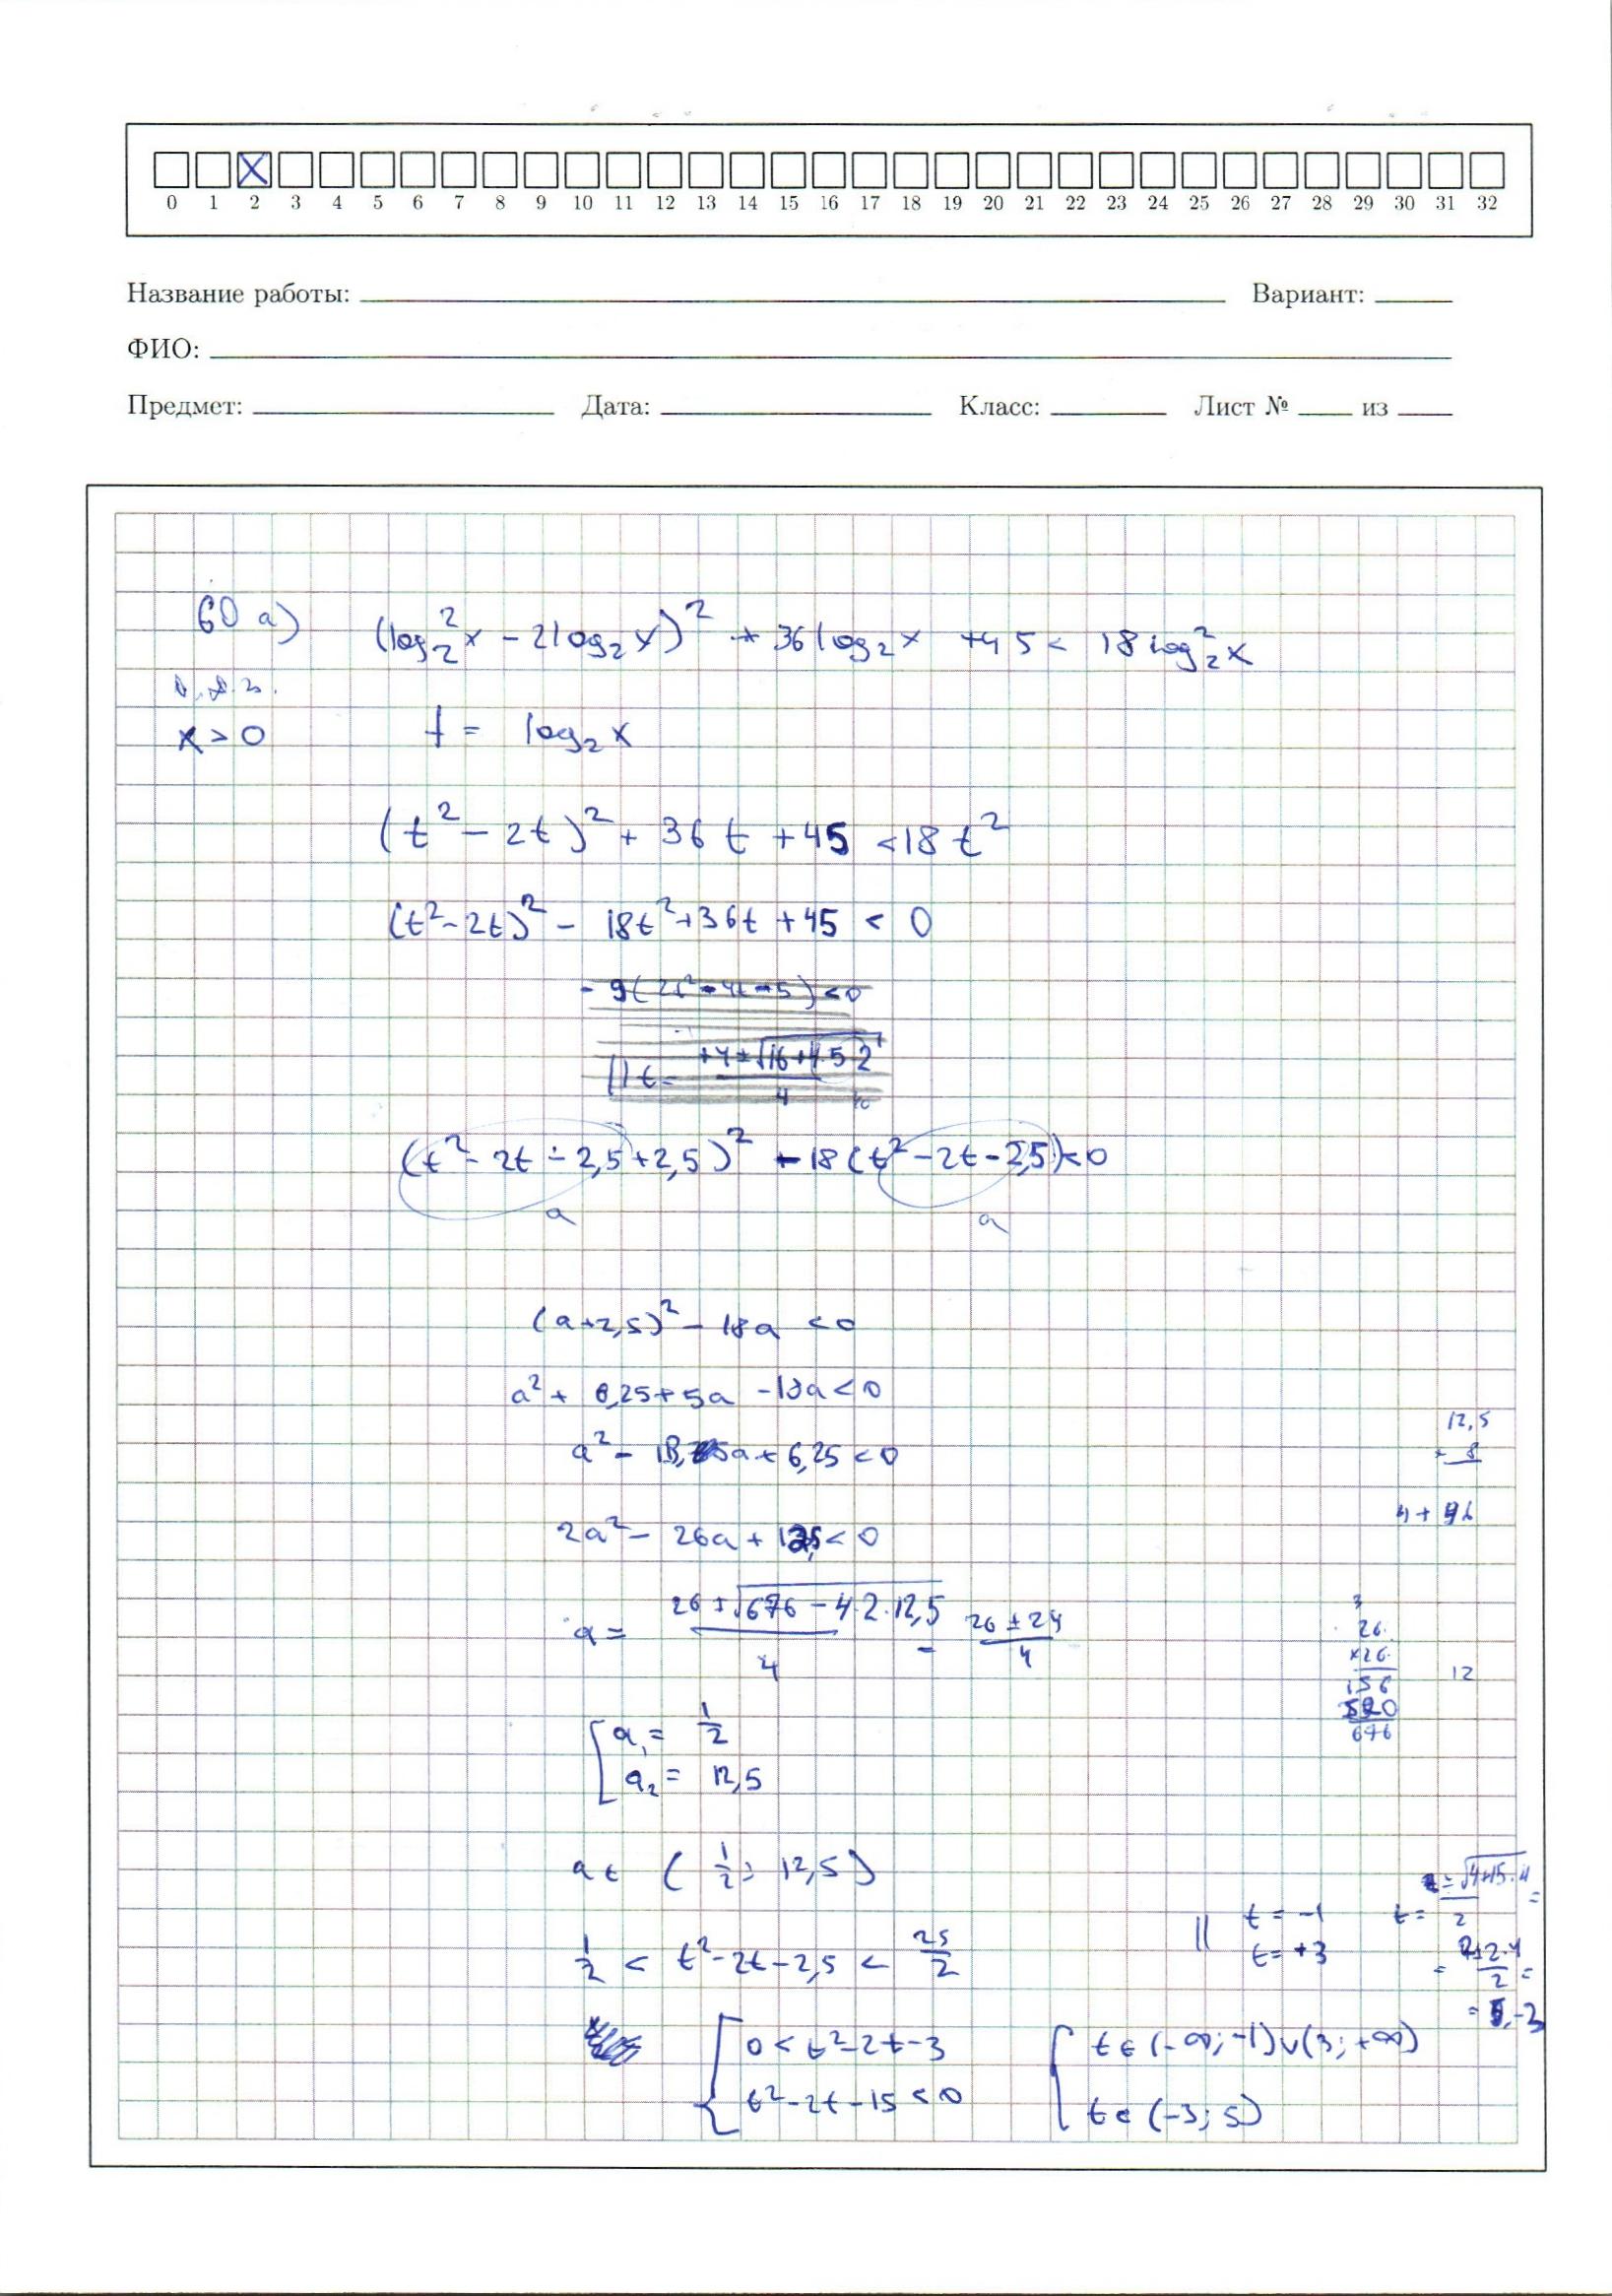 X
0 1 2 3 4 5 6 7 8 9 10 11 12 13 14 15 16 17 18 19 20 21 22 23 24 25 26 27 28 29 30 31 32
Название работы: Вариант:
ФИО:
Предмет: Дата: Класс: Лист № из
60 а) (log₂²x − 2log₂x)² + 36log₂x + 45 < 18log₂²x
О.Д.З.
x > 0 t = log₂x
(t² − 2t)² + 36t + 45 < 18t²
(t² − 2t)² − 18t² + 36t + 45 < 0
(t² − 2t − 2,5 + 2,5)² − 18(t² − 2t − 2,5) < 0
a a
(a + 2,5)² − 18a < 0
a² + 6,25 + 5a − 18a < 0
a² − 13a + 6,25 < 0
12,5
8
4 + 96
2a² − 26a + 12,5 < 0
a = (26 ± √(676 − 4·2·12,5))/4 = (26 ± 24)/4
3
26
×26
156
520
676
12
[ a₁ = 1/2
a₂ = 12,5
a ∈ (1/2; 12,5)
1/2 < t² − 2t − 2,5 < 25/2
|| t = −1
t = +3
t = (2 ± √(4+15·4))/2 =
= (2 ± 2·4)/2 =
= 5, −3
{ 0 < t² − 2t − 3
t² − 2t − 15 < 0
{ t ∈ (−∞; −1) ∪ (3; +∞)
t ∈ (−3; 5)